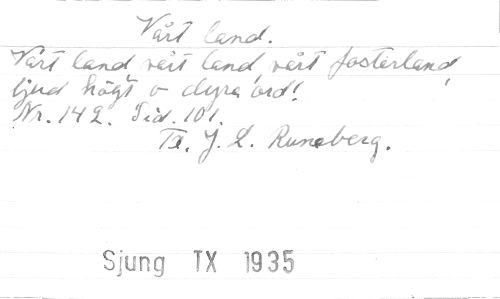 Vårt land.
Vårt land vårt land, vårt fosterland,
ljud högt o dyra ord!
Nr. 142. Sid. 101.
Tx. J. L. Runeberg.
Sjung TX 1935